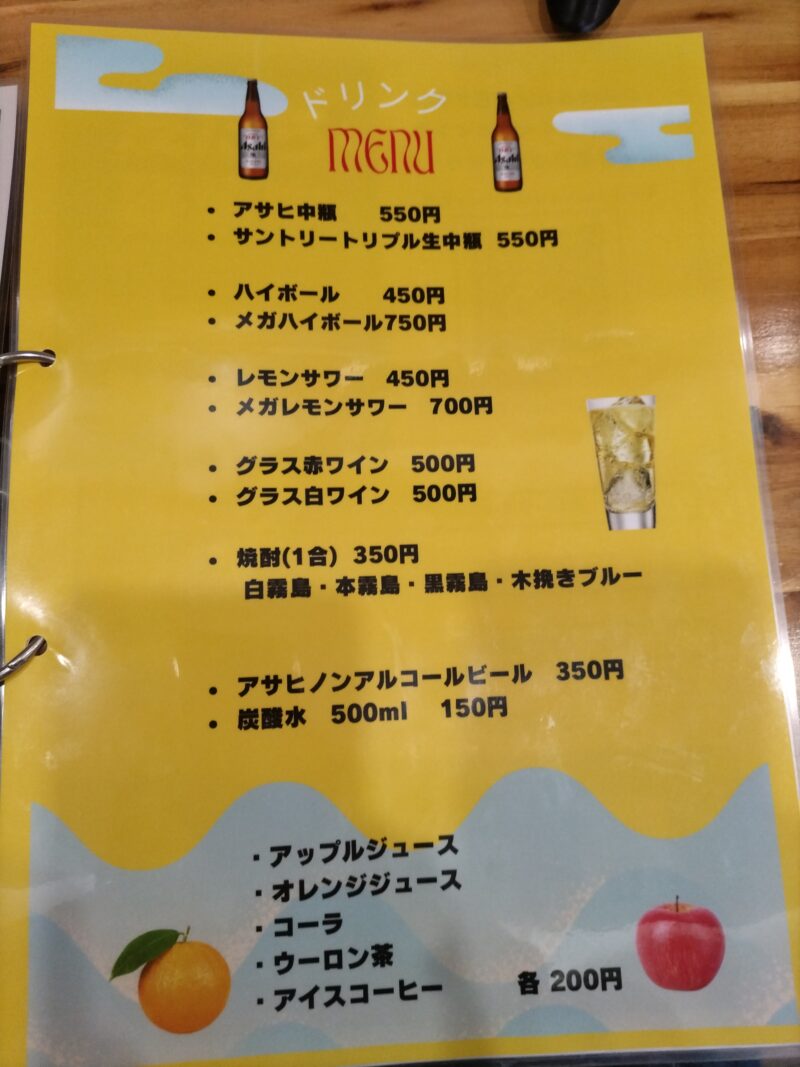 ドリンク
MENU
Asahi
Asahi
・アサヒ中瓶 550円
・サントリートリプル生中瓶 550円
・ハイボール 450円
・メガハイボール750円
・レモンサワー 450円
・メガレモンサワー 700円
・グラス赤ワイン 500円
・グラス白ワイン 500円
・焼酎(1合) 350円
白霧島・本霧島・黒霧島・木挽きブルー
・アサヒノンアルコールビール 350円
・炭酸水 500ml 150円
・アップルジュース
・オレンジジュース
・コーラ
・ウーロン茶
・アイスコーヒー 各 200円